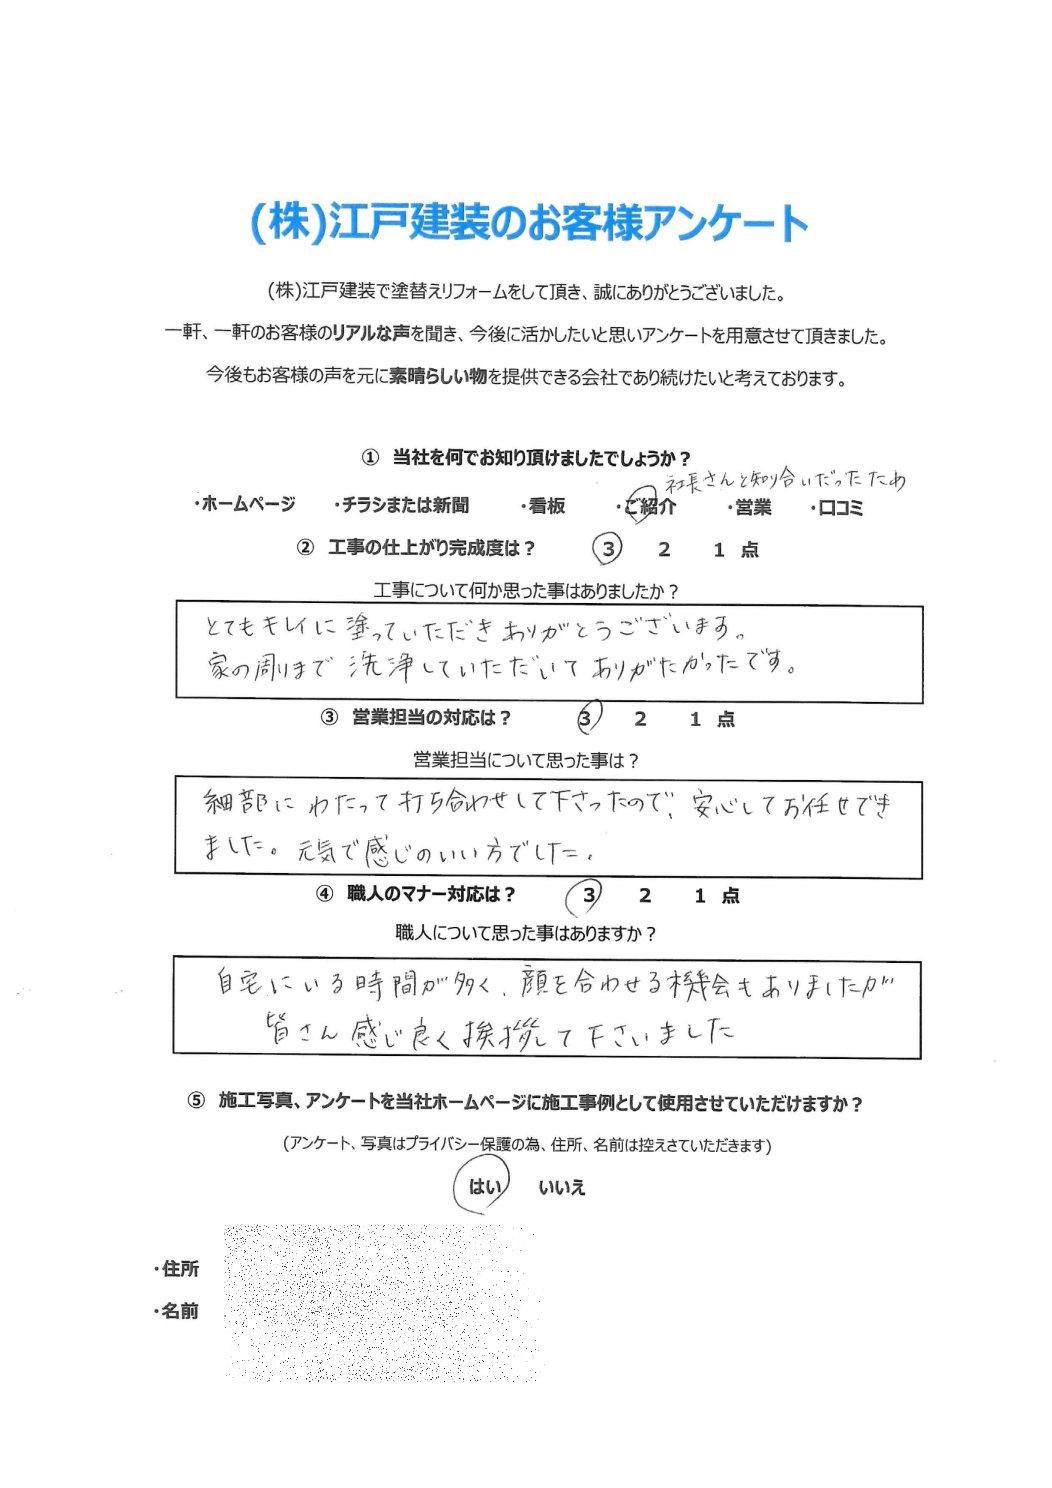 (株)江戸建装のお客様アンケート
(株)江戸建装で塗替えリフォームをして頂き、誠にありがとうございました。
一軒、一軒のお客様のリアルな声を聞き、今後に活かしたいと思いアンケートを用意させて頂きました。
今後もお客様の声を元に素晴らしい物を提供できる会社であり続けたいと考えております。
① 当社を何でお知り頂けましたでしょうか？
社長さんと知り合いだったため
・ホームページ ・チラシまたは新聞 ・看板 ・ご紹介 ・営業 ・口コミ
② 工事の仕上がり完成度は？ 3 2 1 点
工事について何か思った事はありましたか？
とてもキレイに塗っていただきありがとうございます。
家の周りまで洗浄していただいてありがたかったです。
③ 営業担当の対応は？ 3 2 1 点
営業担当について思った事は？
細部にわたって打ち合わせして下さったので、安心してお任せでき
ました。元気で感じのいい方でした。
④ 職人のマナー対応は？ 3 2 1 点
職人について思った事はありますか？
自宅にいる時間が多く、顔を合わせる機会もありましたが
皆さん感じ良く挨拶して下さいました
⑤ 施工写真、アンケートを当社ホームページに施工事例として使用させていただけますか？
(アンケート、写真はプライバシー保護の為、住所、名前は控えさていただきます)
はい いいえ
・住所
・名前